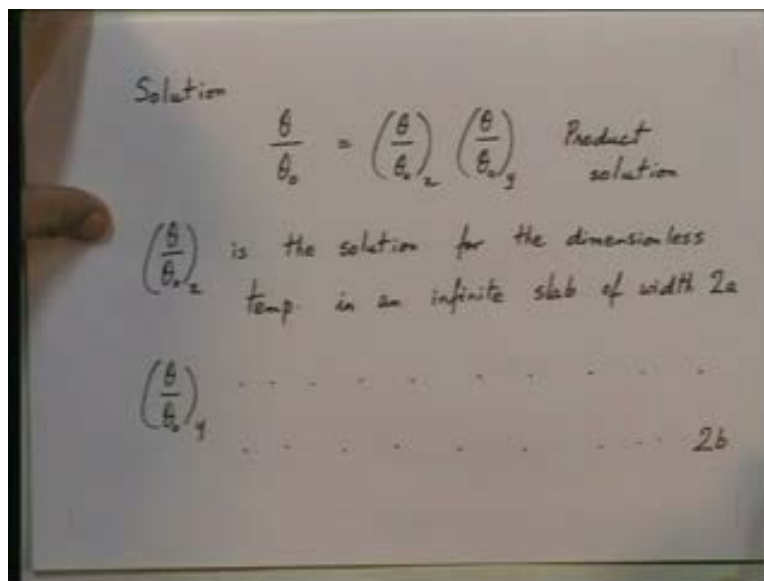 Solution
θ/θ₀ = (θ/θ₀)ₓ (θ/θ₀)ᵧ Product
solution
(θ/θ₀)ₓ is the solution for the dimensionless
temp. in an infinite slab of width 2a
(θ/θ₀)ᵧ . . . . . . . . . .
. . . . . . . . . . 2b